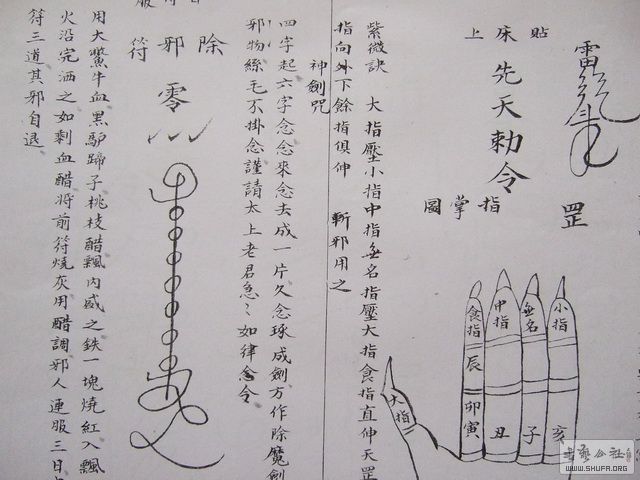 貼床上
先天勅令
罡
指掌圖
食指
中指
無名
小指
大指
辰
卯寅
丑
子
亥
紫微訣　大指壓小指中指無名指壓大指食指直伸天罡
指向外下餘指俱伸　斬邪用之
神劍咒
四字起六字念念來念去成一片久念琢成劍方作除魔劍
邪物絲毛不掛念謹請太上老君急〻如律令
除邪符
零
用大鱉牛血黑驢蹄子桃枝醋瓢內盛之鉄一塊燒紅入瓢
火沿完洒之如剩血醋將前符燒灰用醋調邪人連服三日
符三道其邪自退
WWW.SHUFA.ORG